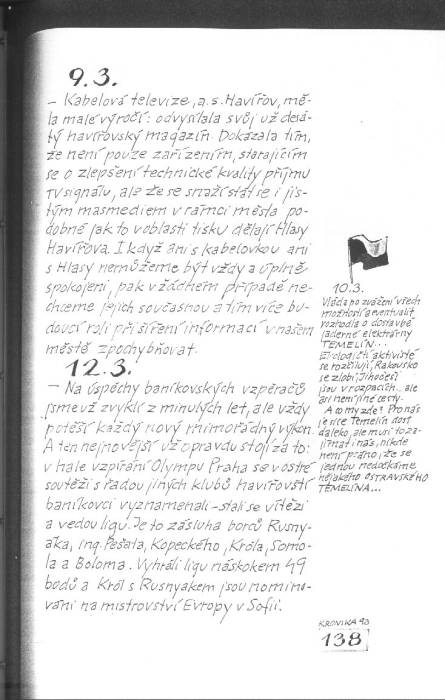 9.3.
– Kabelová televize, a.s. Havířov, mě-
la malé výročí: odvysílala svůj už desá-
tý havířovský magazín. Dokázala tím,
že není pouze zařízením, starajícím
se o zlepšení technické kvality příjmu
TV signálu, ale že se snaží stát se i jis-
tým masmediem v rámci města po-
dobně jak to v oblasti tisku dělají Hlasy
Havířova. I když ani s kabelovkou ani
s Hlasy nemůžeme být vždy a úplně
spokojeni, pak v žádném případě ne-
chceme jejich současnou a tím více bu-
doucí roli při šíření informací v našem
městě zpochybňovat.
12.3.
– Na úspěchy baníkovských vzpěračů
jsme už zvyklí z minulých let, ale vždy
potěší každý nový mimořádný výkon.
A ten nejnovější už opravdu stojí za to:
v hale vzpírání Olympu Praha se v ostré
soutěži s řadou jiných klubů havířovští
baníkovci vyznamenali – stali se vítězi
a vedou ligu. Je to zásluha borců Rusny-
áka, ing. Pešata, Kopeckého, Króla, Somo-
la a Boloma. Vyhráli ligu náskokem 49
bodů a Król s Rusnyakem jsou nomino-
váni na mistrovství Evropy v Sofii.
10.3.
Vláda po zvážení všech
možností a eventualit
rozhodla o dostavbě
jaderné elektrárny
TEMELÍN...
Ekologičtí aktivisté
se rozčilují, Rakousko
se zlobí, Jihočeši
jsou v rozpacích... ale
asi není jiné cesty.
A to my zde! Pro nás
je sice Temelín dost
daleko, ale musí to za-
jímat i nás, nikde
není psáno, že se
jednou nedočkáme
nějakého OSTRAVSKÉHO
TEMELÍNA...
KRONIKA 93
138